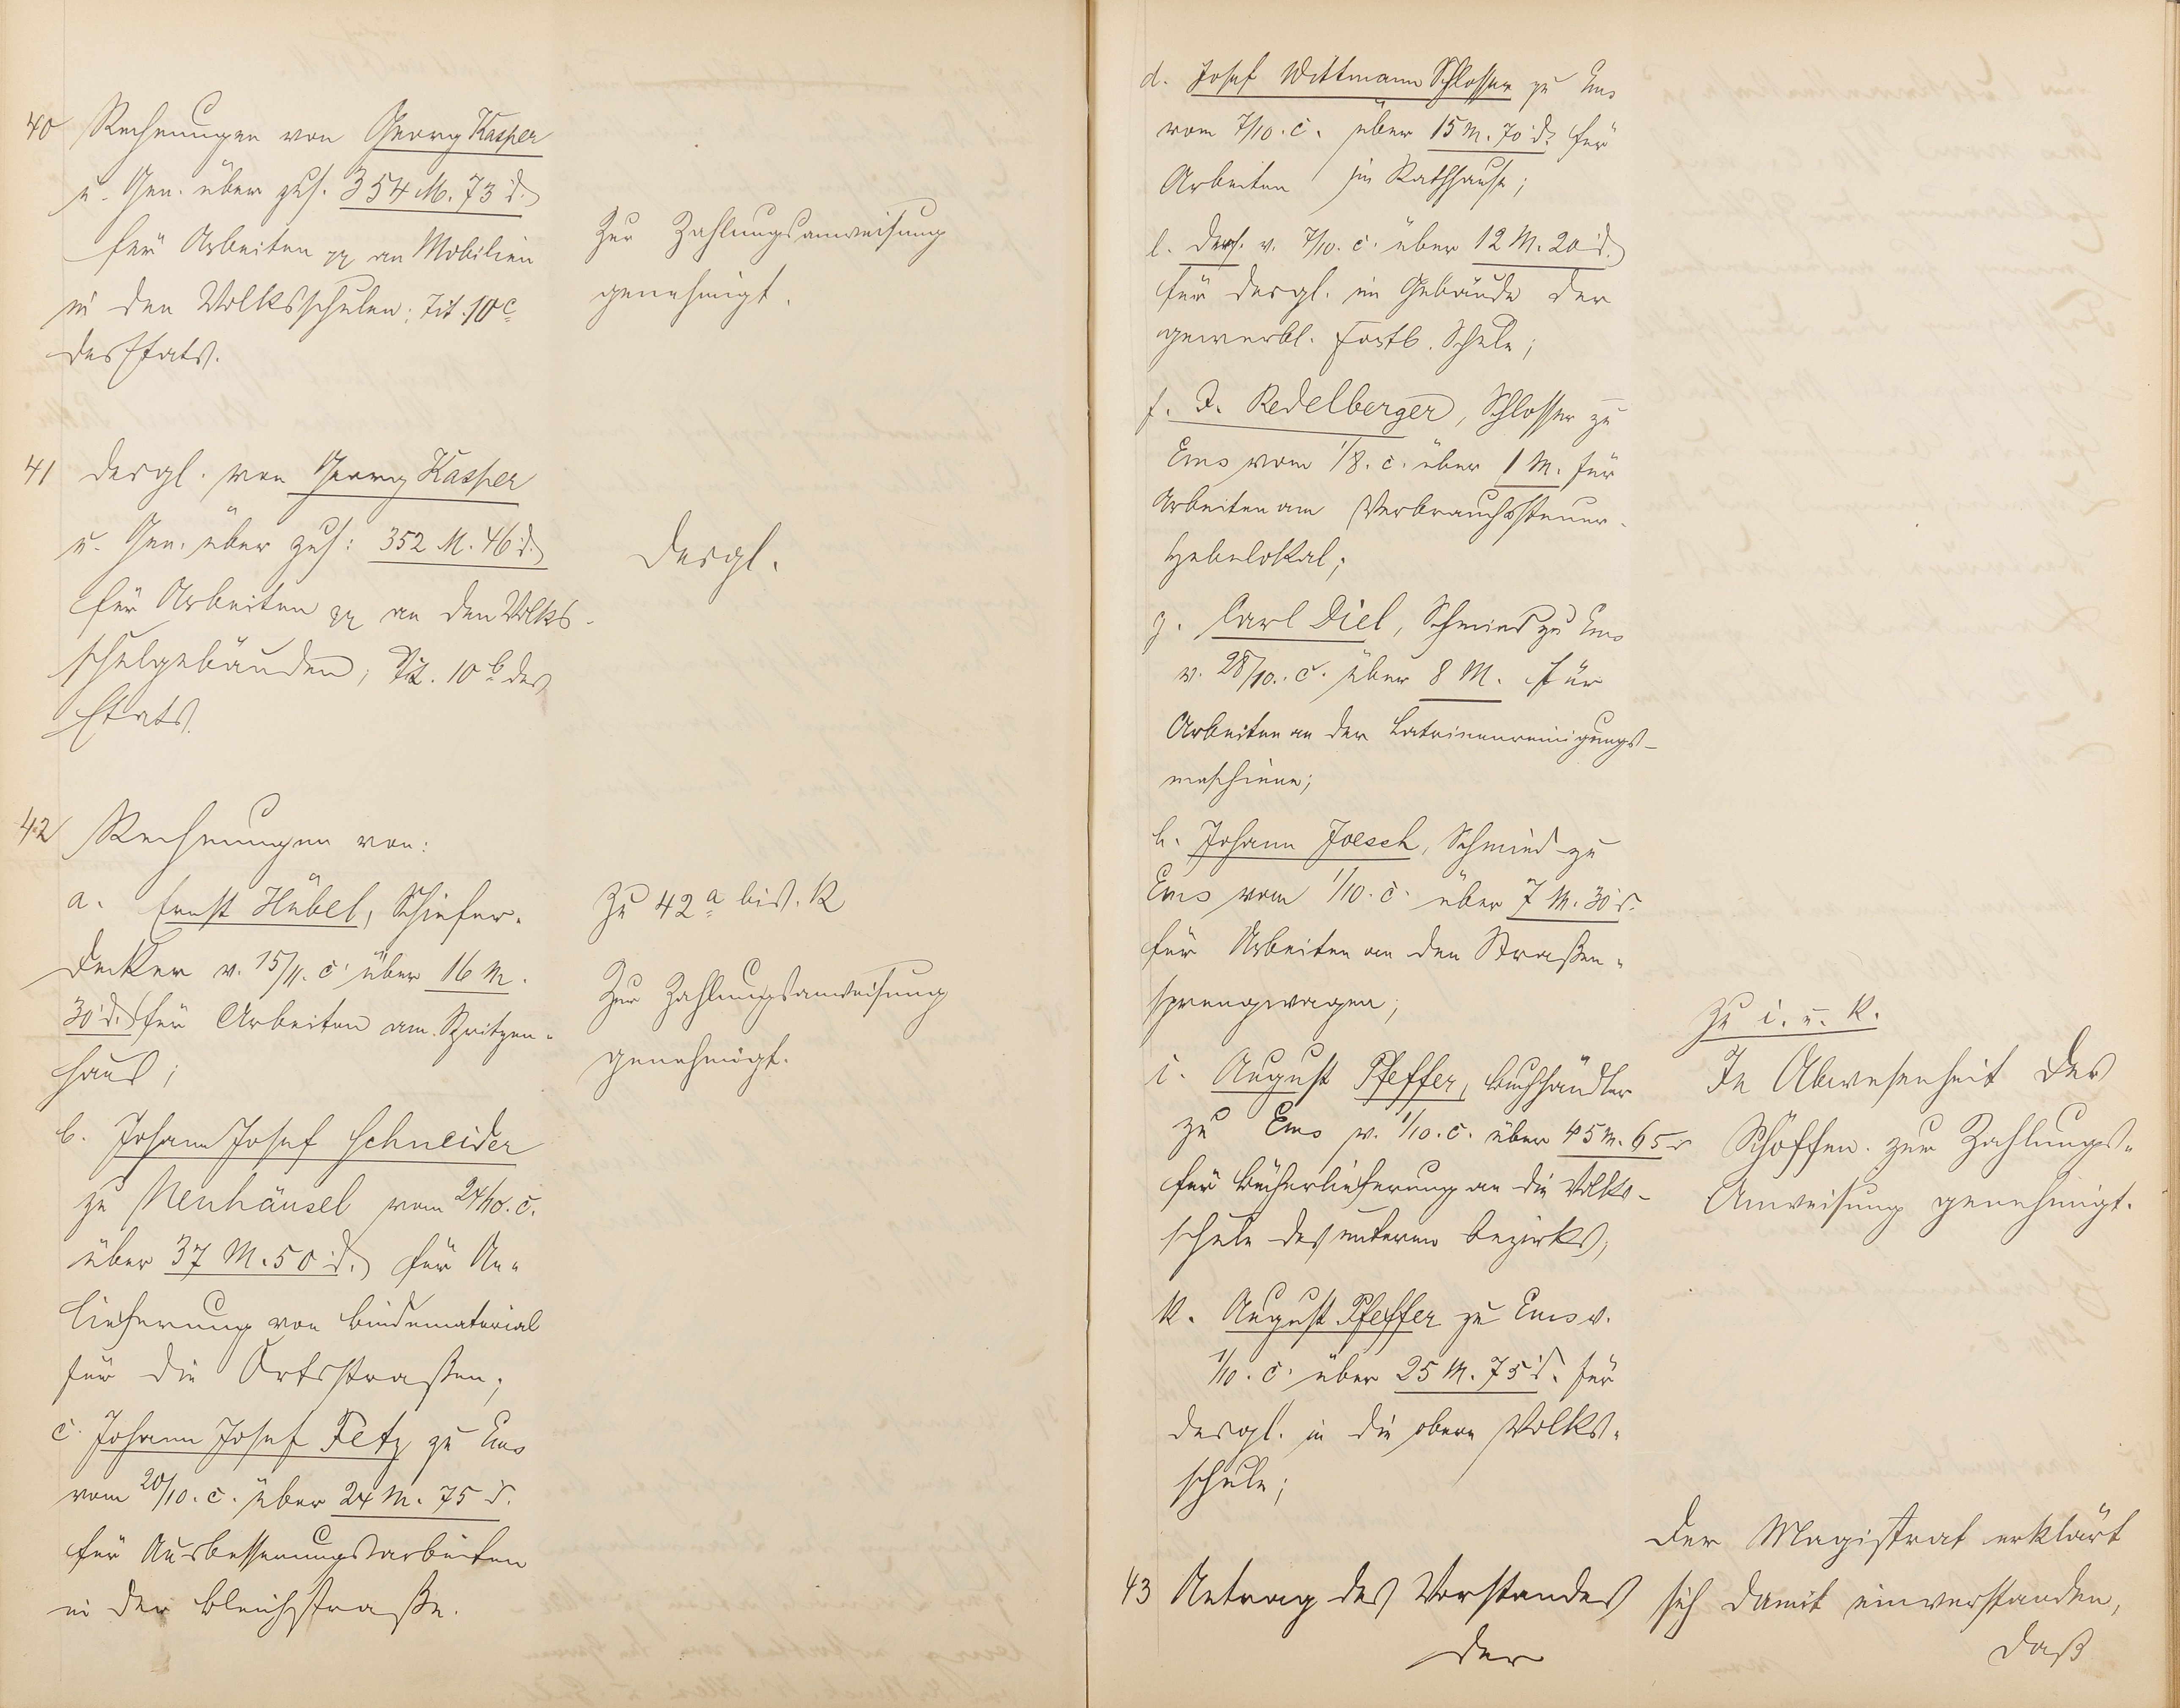 40 Rechnungen von Georg Kasper
u. Gen. über zus. 354 M. 73 d.
für Arbeiten pp an Mobilien
in den Volksschulen; Tit. 10 c
des Etats.
Zur Zahlungsanweisung
genehmigt.
41 desgl. von Georg Kasper
u. Gen. über zus: 352 M. 46 d.
für Arbeiten pp an den Volks-
schulgebäuden; Tit. 10 b des
Etats.
desgl.
42 Rechnungen von:
a. Ernst Hübel, Schiefer-
decker v. 15/11. c. über 16 M.
30 d. für Arbeiten am Spritzen-
haus;
b. Johann Josef Schneider
zu Neuhäusel vom 24/10. c.
über 37 M. 50 d. für An-
lieferung von Bindematerial
für die Ortsstraßen;
c. Johann Josef Fetz zu Ems
vom 20/10. c. über 24 M. 75 d.
für Ausbesserungsarbeiten
in der Bleichstraße.
Zu 42 a bis. k
Zur Zahlungsanweisung
genehmigt.
d. Josef Wittmann Schlosser zu Ems
vom 7/10. c. über 15 M. 70 d. für
Arbeiten im Rathhause;
e. ders. v. 7/10. c. über 12 M. 20 d.
für desgl. im Gebäude der
gewerbl. Fortb. Schule;
f. F. Redelberger, Schlosser zu
Ems vom 1/8. c. über 1 M. für
Arbeiten am Verbrauchssteuer-
Hebelokal;
g. Carl Diel, Schmied zu Ems
v. 28/10. c. über 8 M. für
Arbeiten an der Latrinenreinigungs-
maschiene;
h. Johann Joesch, Schmied zu
Ems vom 1/10. c. über 7 M. 30 d.
für Arbeiten an den Straßen-
sprengwagen;
i. August Pfeffer, Buchhändler
zu Ems v. 1/10. c. über 45 M. 65 d
für Bücherlieferung an die Volks-
schule des unteren Bezirks;
k. August Pfeffer zu Ems v.
1/10. c. über 25 M. 75 d. für
desgl. in die obere Volks-
schule;
Zu i. u. k.
In Abwesenheit des
Schöffen. zur Zahlungs-
Anweisung genehmigt.
43 Antrag des Vorstandes
der
Der Magistrat erklärt
sich damit einverstanden,
daß